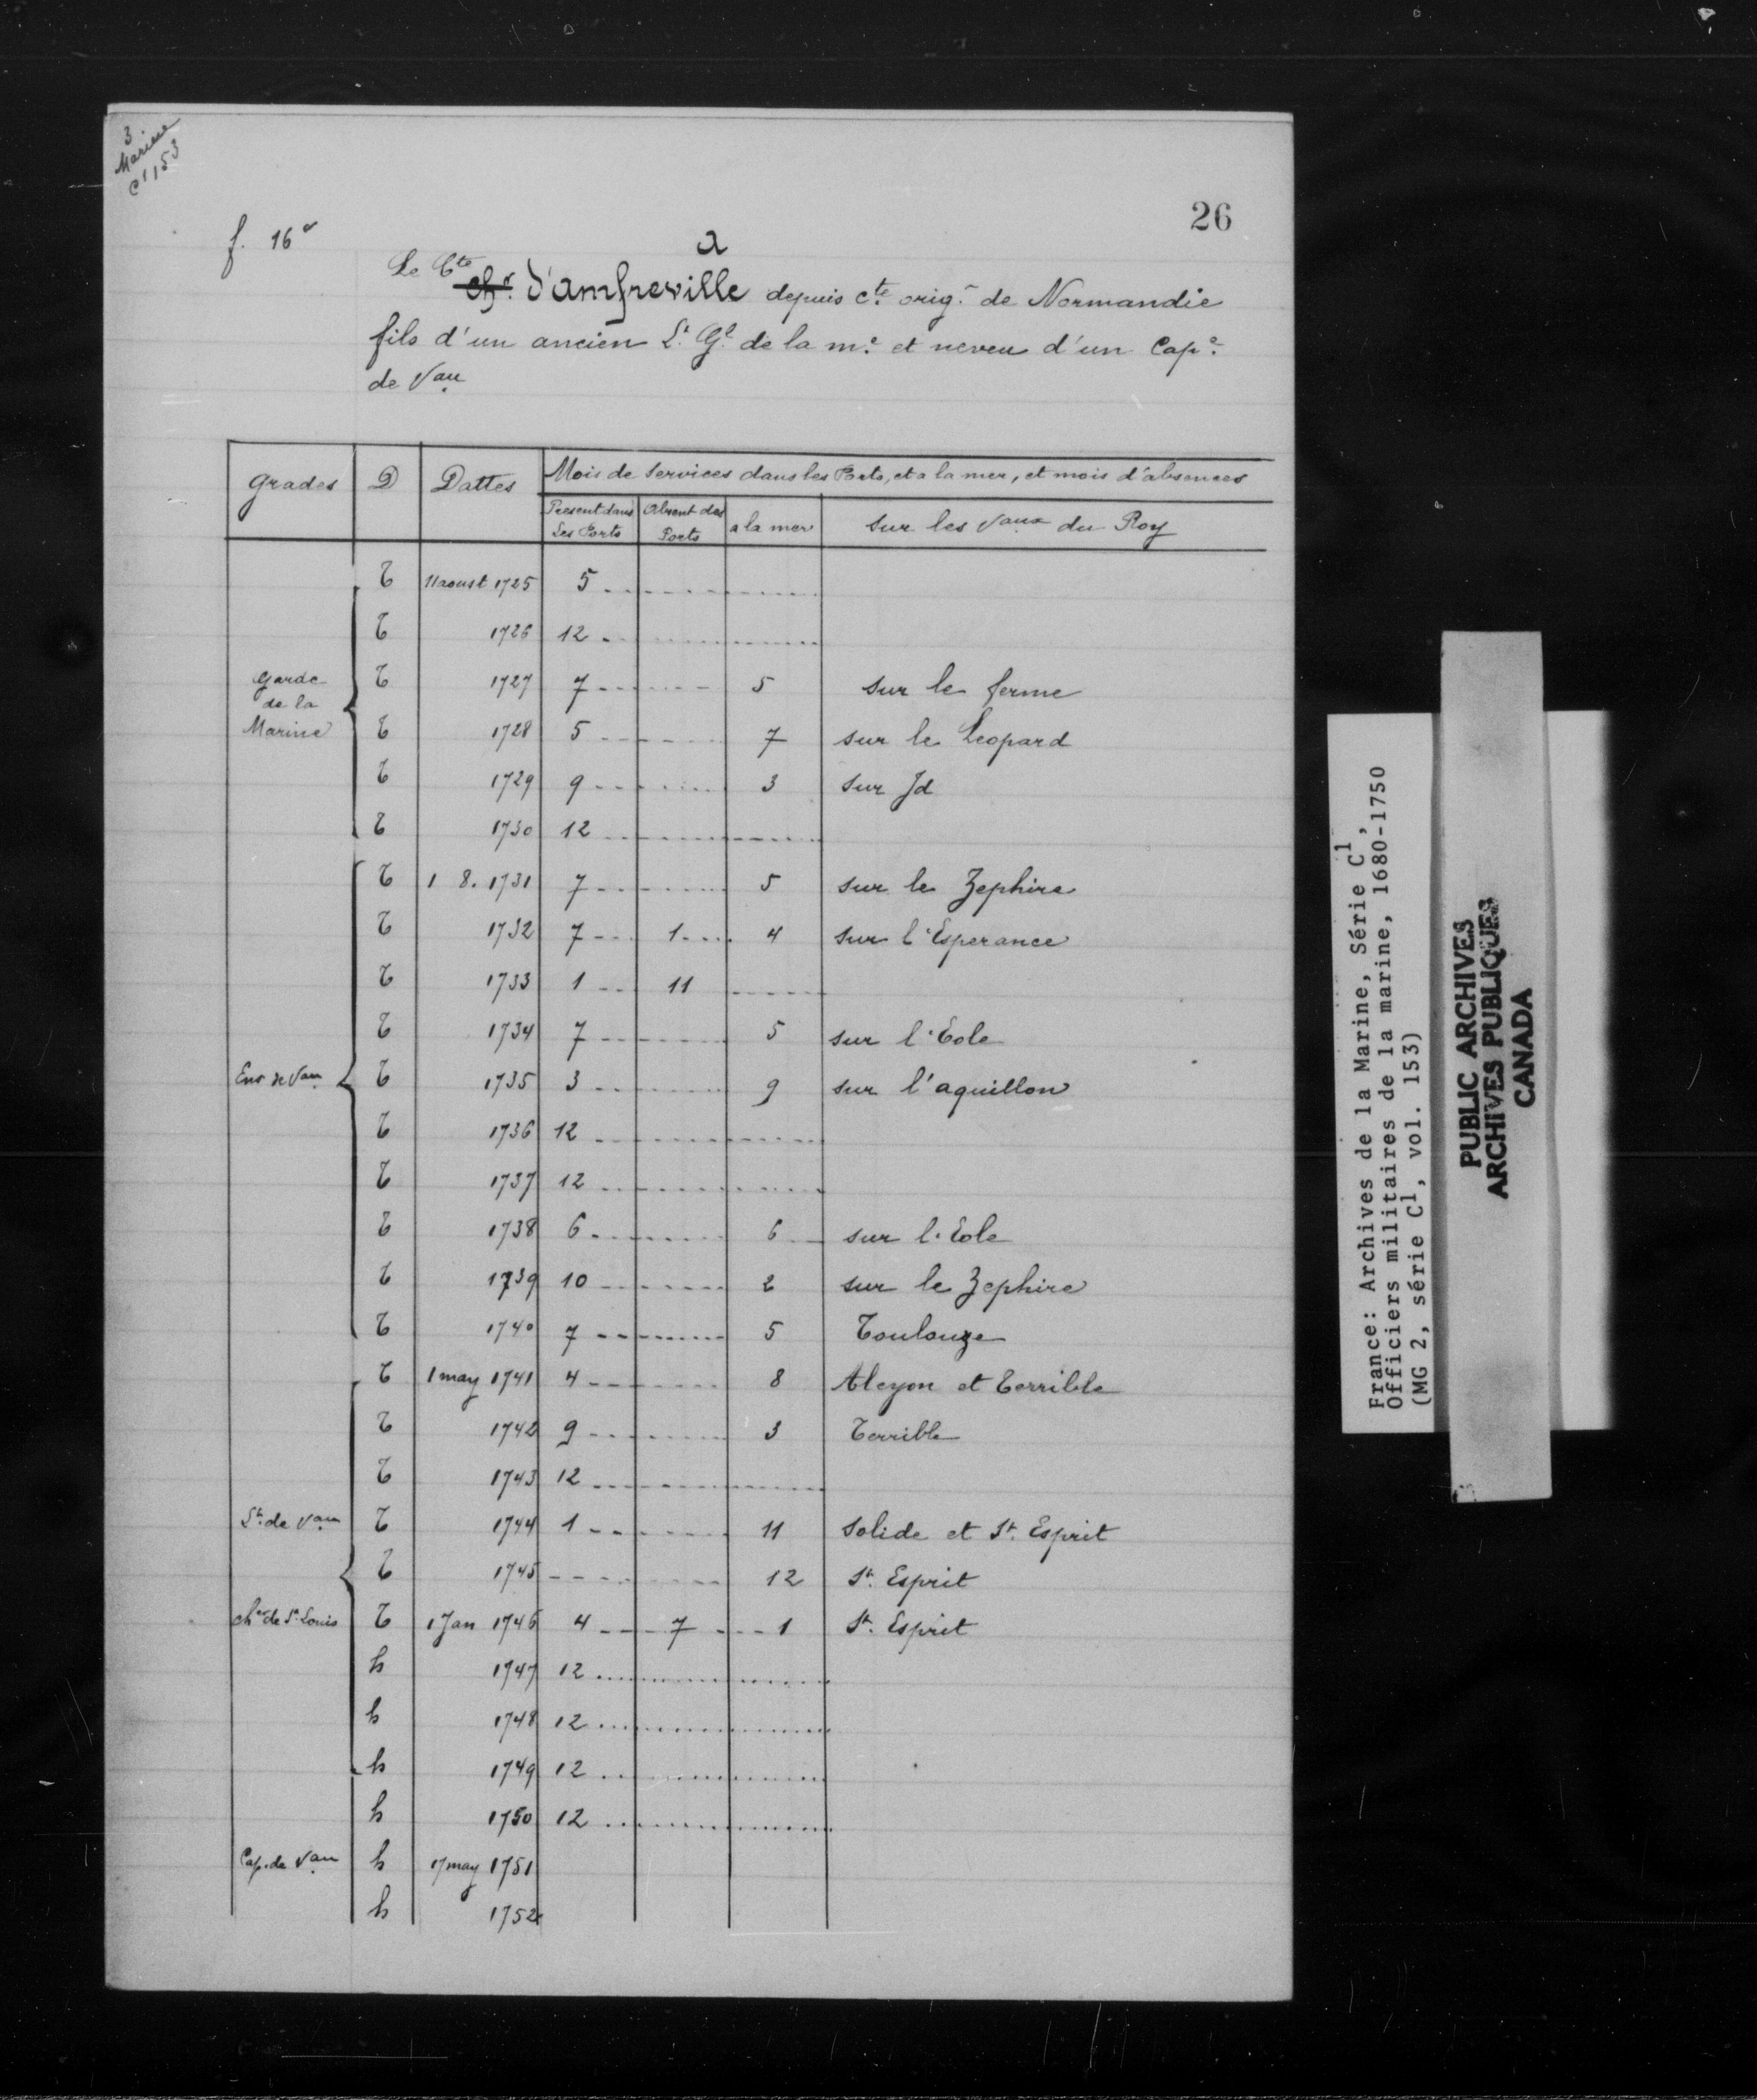 3
Marine
C1 153
26
f. 16r
a
Le Cte
chr. d'amfreville depuis cte. orig. de Normandie
fils d'un ancien Lt. Gl. de la me. et neveu d'un Cape.
de Vau
Grades D Dattes Mois de Services dans les Ports, et a la mer, et mois d'absences
Present dans Les Ports Absent des Ports a la mer sur les Vaux du Roy
T 11 aoust 1725 5
T 1726 12
Garde T 1727 7 5 sur le ferme
de la
Marine T 1728 5 7 sur le Leopard
T 1729 9 3 sur Jd
T 1730 12
T 1 8. 1731 7 5 sur le Zephire
T 1732 7 1 4 sur l'Esperance
T 1733 1 11
T 1734 7 5 sur l'Eole
Ens de Vau T 1735 3 9 sur l'aquillon
T 1736 12
T 1737 12
T 1738 6 6 sur l'Eole
T 1739 10 2 sur le Zephire
T 1740 7 5 Toulouze
T 1 may 1741 4 8 Alcyon et Terrible
T 1742 9 3 Terrible
T 1743 12
Lt. de Vau T 1744 1 11 Solide et St. Esprit
T 1745 12 St. Esprit
cher de St. Louis T 1 Jan 1746 4 7 1 St. Esprit
h 1747 12
h 1748 12
h 1749 12
h 1750 12
Cap. de Vau h 17 may 1751
h 1752
France: Archives de la Marine, Série C1,
Officiers militaires de la marine, 1680-1750
(MG 2, série C1, vol. 153)
PUBLIC ARCHIVES
ARCHIVES PUBLIQUES
CANADA